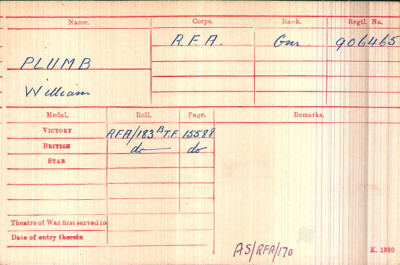 Name. Corps. Rank. Regtl. No.
R.F.A. Gnr. 906465
PLUMB
William
Medal. Roll. Page. Remarks.
VICTORY RFA/183B T.F. 15588
BRITISH do do
STAR
Theatre of War first served in
Date of entry therein
AS/RFA/170
K. 1380